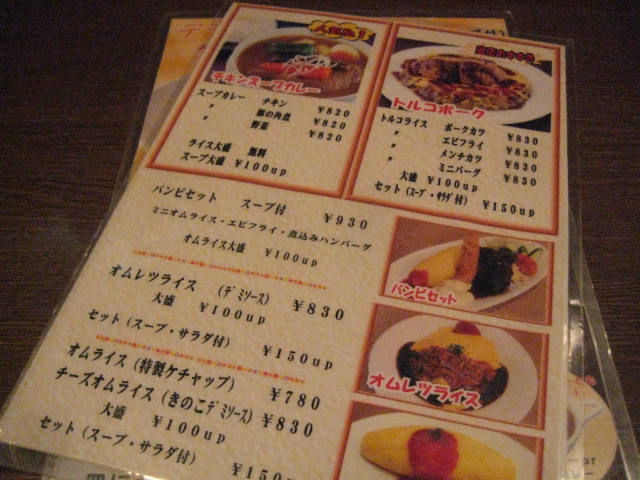 人気No.1
チキンスープカレー
スープカレー チキン ¥820
〃 豚の角煮 ¥820
〃 野菜 ¥820
ライス大盛 無料
スープ大盛 ¥100up
当店おすすめ
トルコポーク
トルコライス ポークカツ ¥830
〃 エビフライ ¥830
〃 メンチカツ ¥830
〃 ミニバーグ ¥830
大盛 ¥100up
セット(スープ・サラダ付) ¥150up
バンビセット スープ付 ¥930
ミニオムライス・エビフライ・煮込みハンバーグ
オムライス大盛 ¥100up
バンビセット
オムレツライス (デミソース) ¥830
大盛 ¥100up
セット(スープ・サラダ付) ¥150up
オムレツライス
オムライス(特製ケチャップ) ¥780
チーズオムライス(きのこデミソース) ¥830
大盛 ¥100up
セット(スープ・サラダ付)
¥150